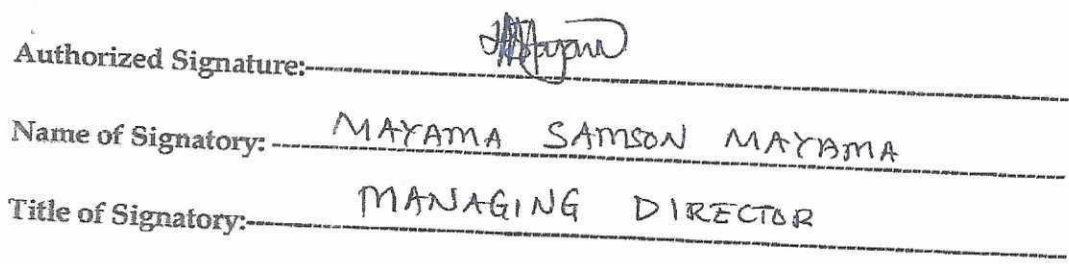 Authorized Signature:
Name of Signatory: MAYAMA SAMSON MAYAMA
Title of Signatory: MANAGING DIRECTOR